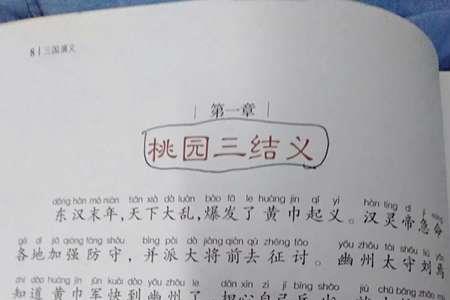 8 | 三国演义
第一章
桃园三结义
dōng hàn mò nián tiān xià dà luàn bào fā le huáng jīn qǐ yì hàn líng dì jí mìng
东汉末年,天下大乱,爆发了黄巾起义。汉灵帝急命
gè dì jiā qiáng fáng shǒu bìng pài dà jiàng qián qù zhēng tǎo yōu zhōu tài shǒu liú yān
各地加强防守,并派大将前去征讨。幽州太守刘焉
zhī dào huáng jīn jūn kuài dào yōu zhōu le
知道黄巾军快到幽州了,担心自己兵少